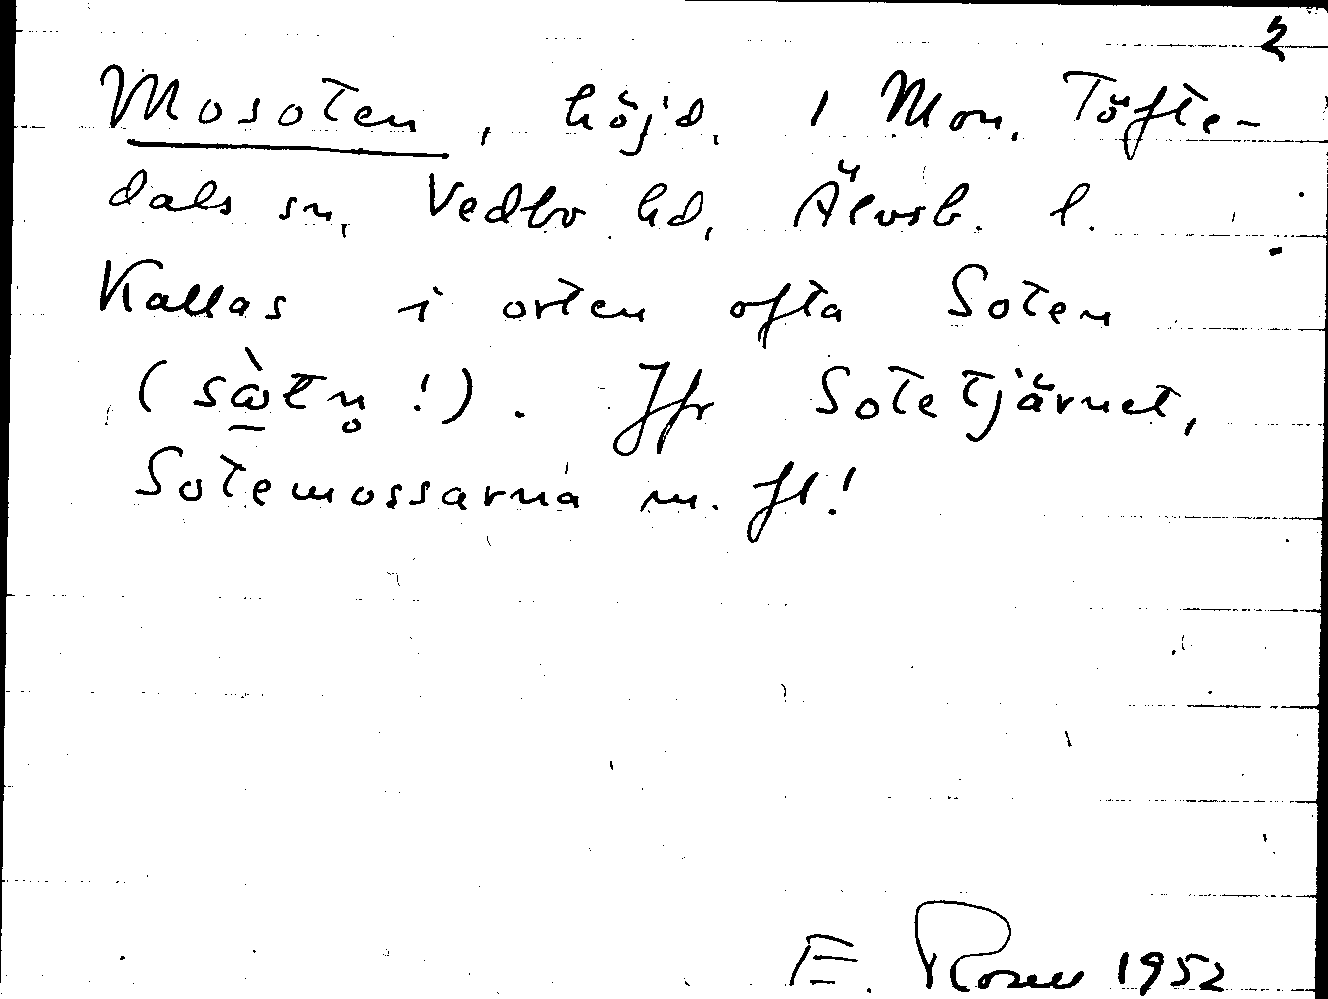 2
Mosoten, höjd, 1 Mon, Töfte-
dals sn, Vedbo hd, Älvsb. l.
Kallas i orten ofta Soten
(sὼtn̥ !). Jfr Sotetjärnet,
Sotemossarna m. fl!
E. Rosell 1952